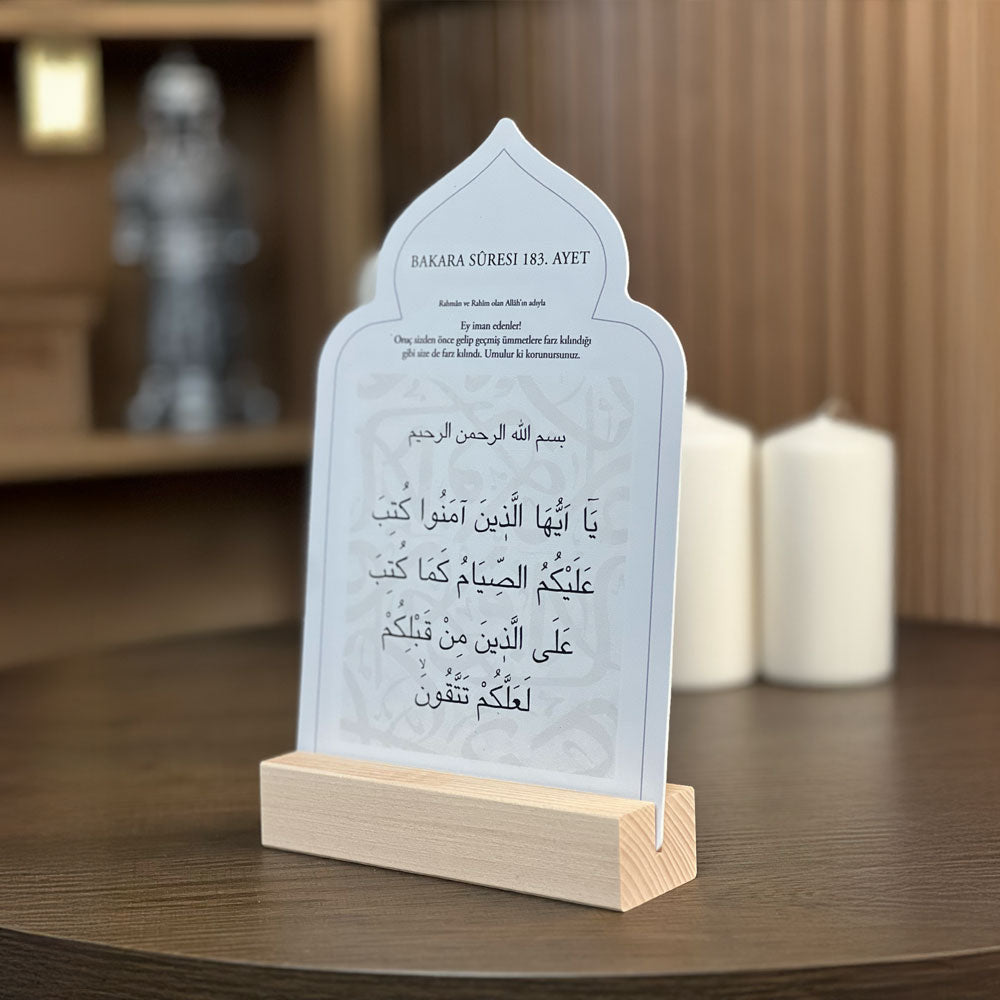 BAKARA SÛRESI 183. AYET
Rahmân ve Rahîm olan Allâh'ın adıyla
Ey iman edenler!
Oruç sizden önce gelip geçmiş ümmetlere farz kılındığı
gibi size de farz kılındı. Umulur ki korunursunuz.
بسم الله الرحمن الرحيم
يَٓا اَيُّهَا الَّذٖينَ آمَنُوا كُتِبَ
عَلَيْكُمُ الصِّيَامُ كَمَا كُتِبَ
عَلَى الَّذٖينَ مِنْ قَبْلِكُمْ
لَعَلَّكُمْ تَتَّقُونَۙ